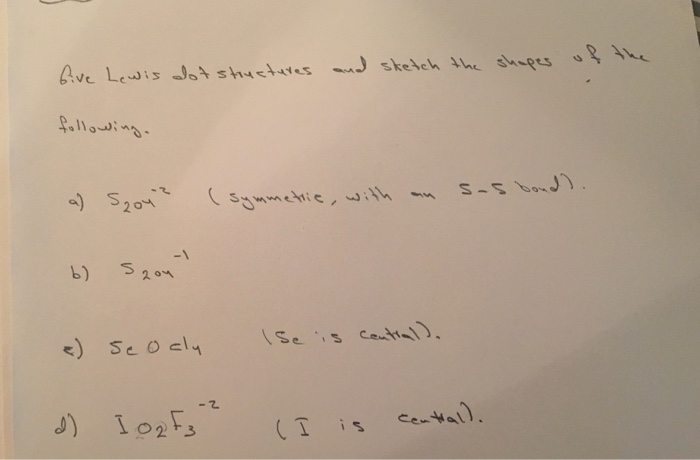 Give Lewis dot structures and sketch the shapes of the
following.
a) S₂O₄⁻² (symmetric, with an S-S bond).
b) S₂O₄⁻¹
c) SeOCl₄ (Se is central).
d) IO₂F₃⁻² (I is central).